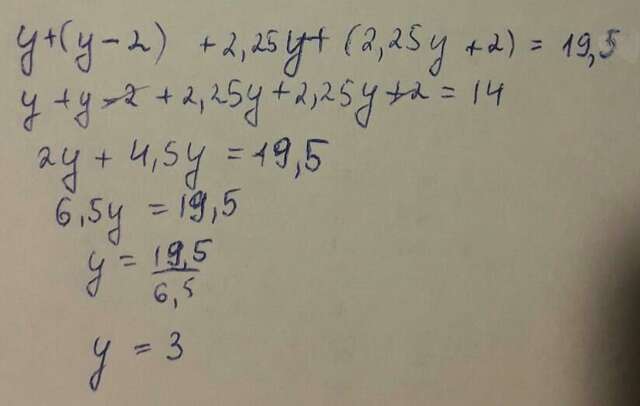 y+(y-2) +2,25y+ (2,25y+2) = 19,5
y+y-2+2,25y+2,25y+2 = 14
2y + 4,5y = 19,5
6,5y = 19,5
y = 19,5/6,5
y = 3